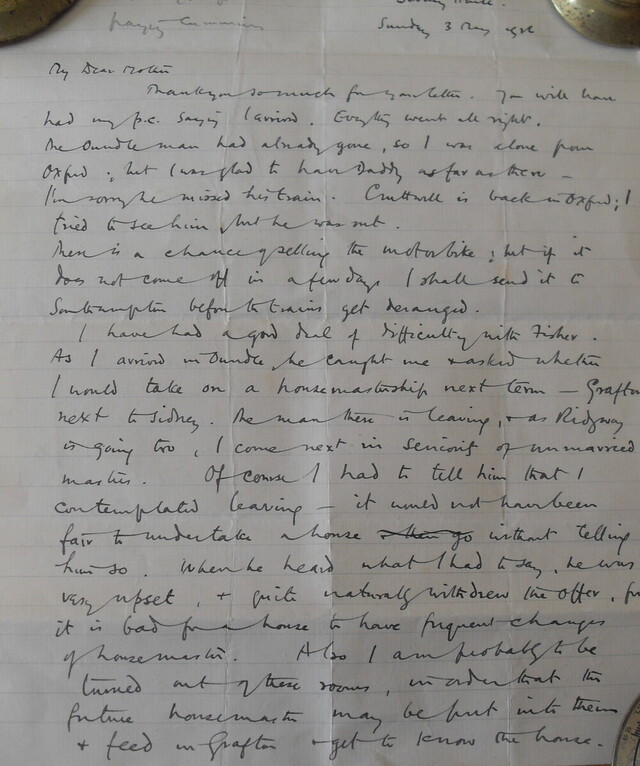 Sunday 3 May
My Dear Mother
Thankyou so much for your letter. You will have
had my p.c. saying I arrived. Everything went all right.
The Oundle man had already gone, so I was alone from
Oxford; but I was glad to have Daddy as far as there –
I'm sorry he missed his train. Cruttwell is back in Oxford; I
tried to see him, but he was out.
There is a chance of selling the motorbike; but if it
does not come off in a few days I shall send it to
Southampton before the trains get deranged.
I have had a good deal of difficulty with Fisher.
As I arrived in Oundle, he caught me & asked whether
I would take on a housemastership next term – Grafton
next to Sidney. The man there is leaving, & as Ridgway
is going too, I come next in seniority of unmarried
masters. Of course I had to tell him that I
contemplated leaving – it would not have been
fair to undertake a house & then go without telling
him so. When he heard what I had to say, he was
very upset, & quite naturally withdrew the offer, for
it is bad for a house to have frequent changes
of housemaster. Also I am probably to be
turned out of these rooms, in order that the
future housemaster may be put into them
& feed in Grafton & get to know the house.